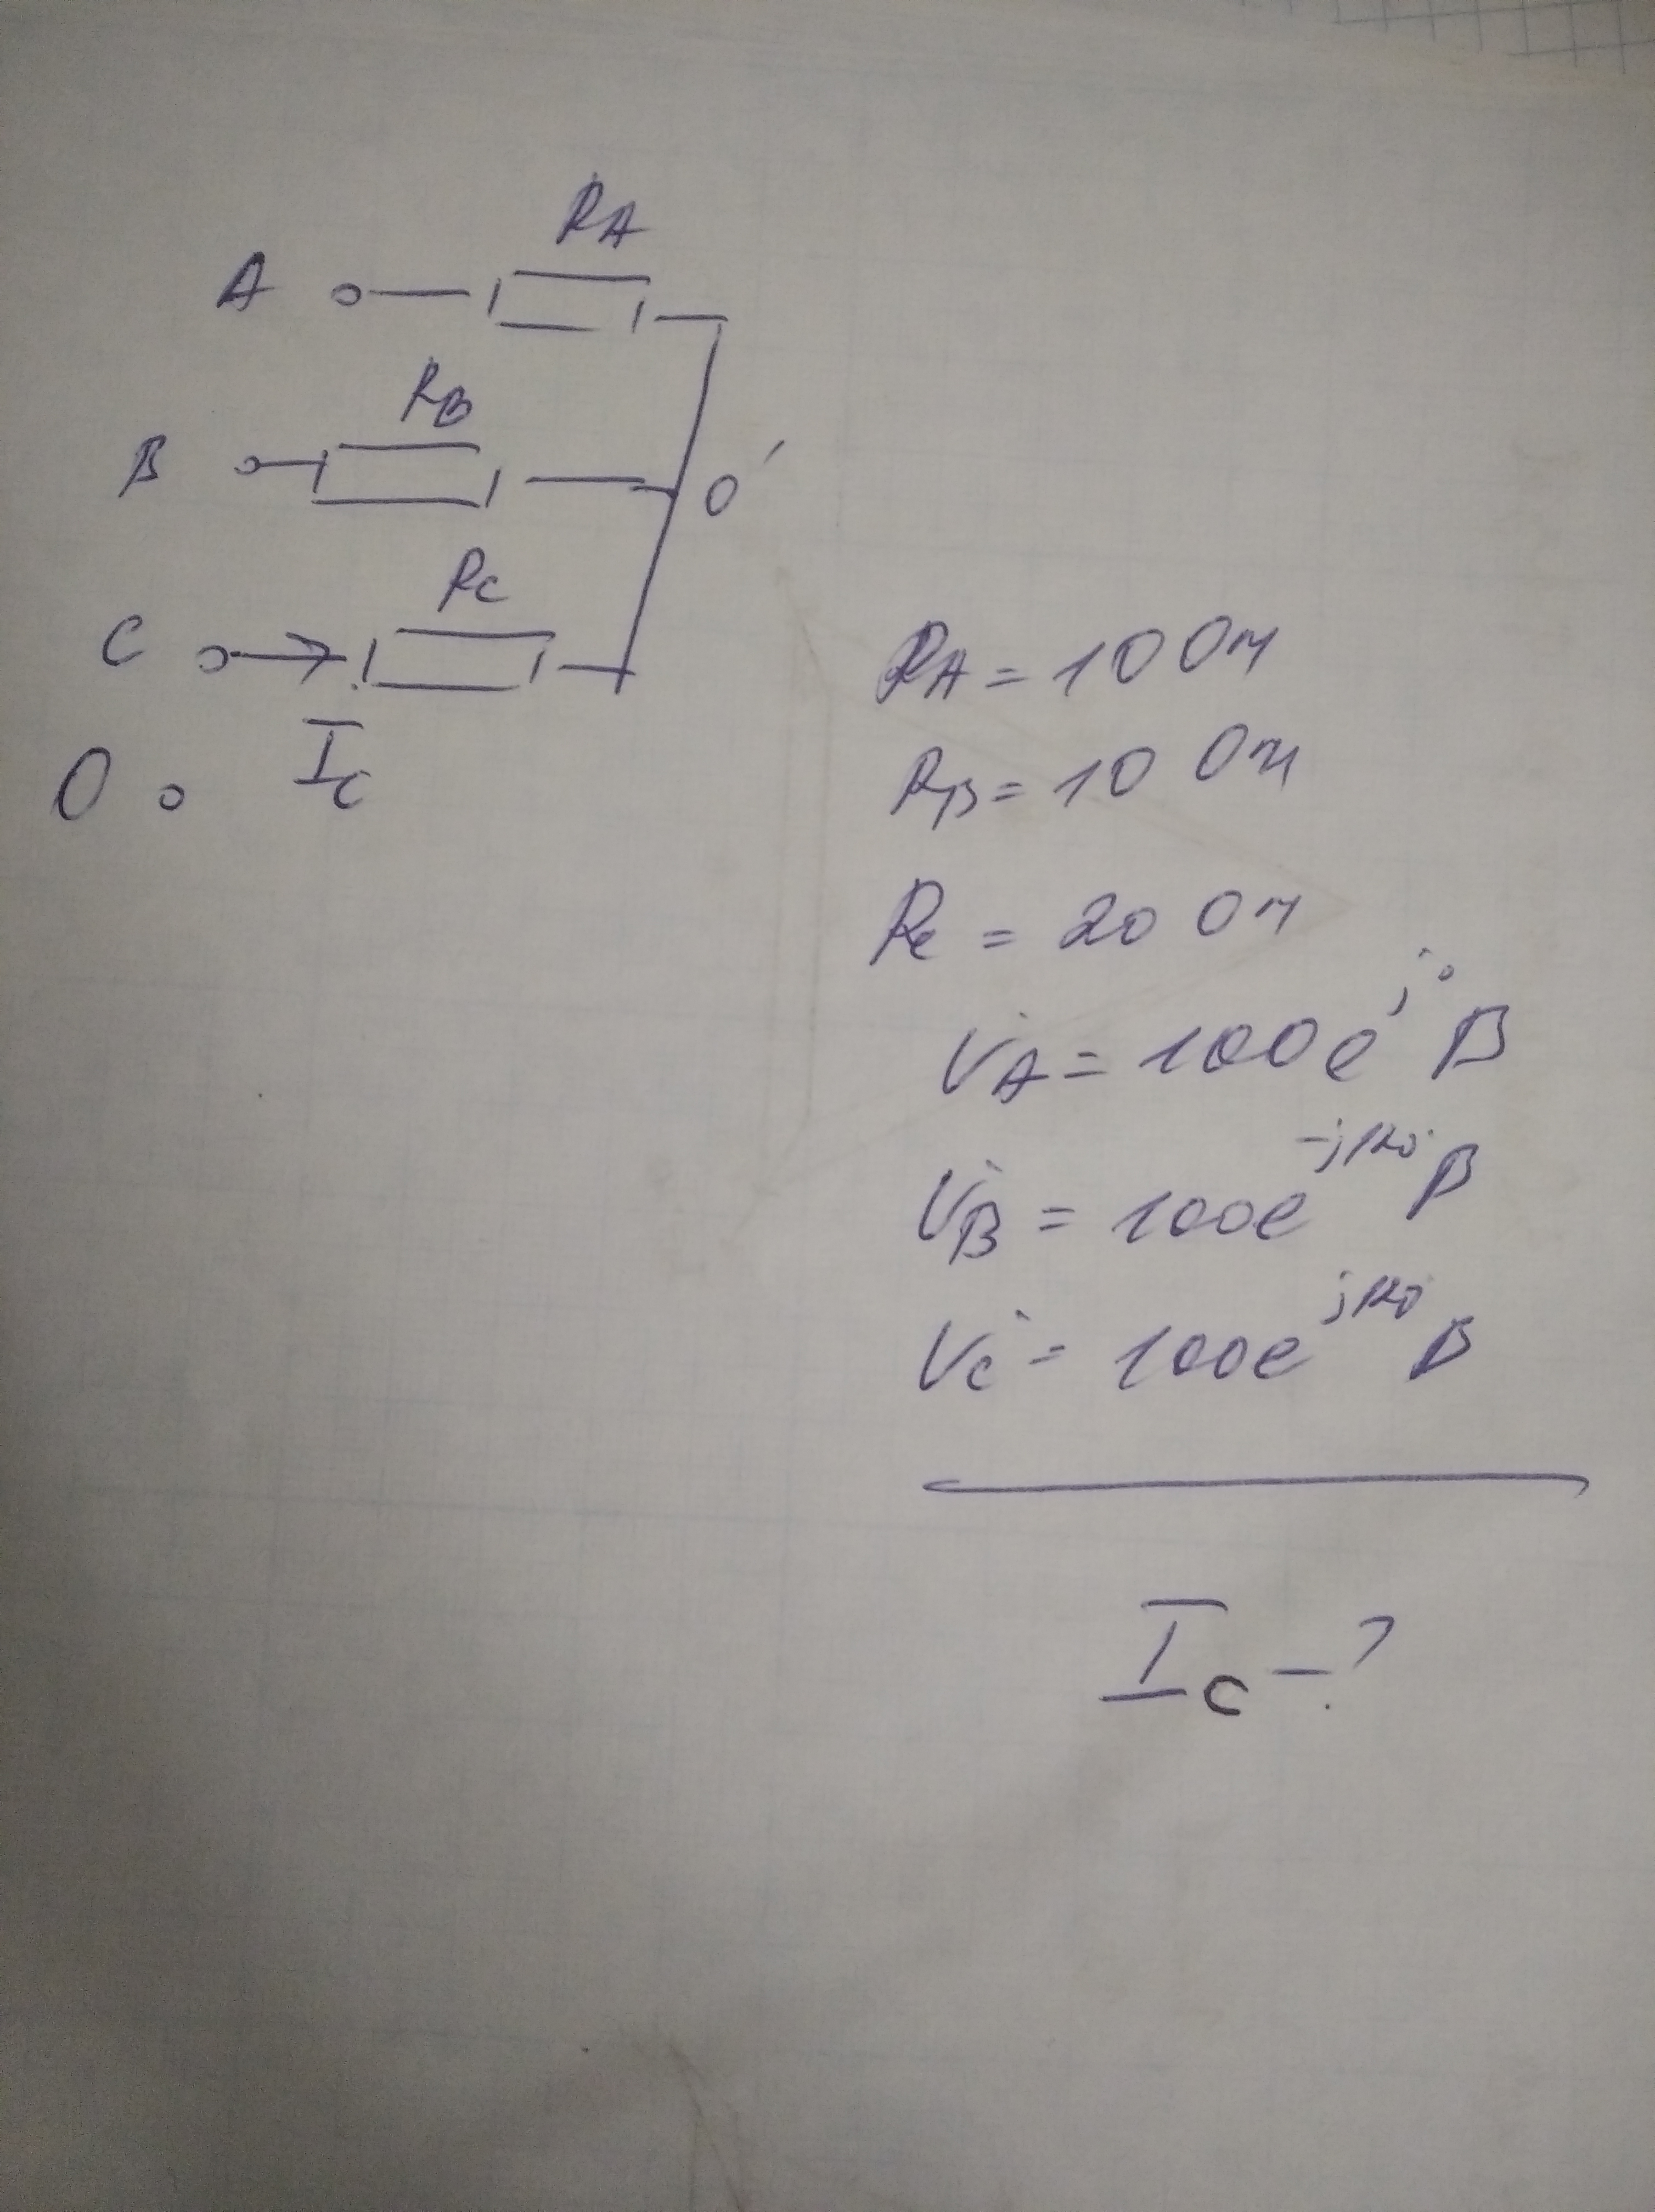 R_A
A
R_B
B
O'
R_C
C
I_C
O
R_A = 10 Ом
R_B = 10 Ом
R_C = 20 Ом
U̇_A = 100e^{j0} В
U̇_B = 100e^{-j120°} В
U̇_C = 100e^{j120} В
I_C - ?